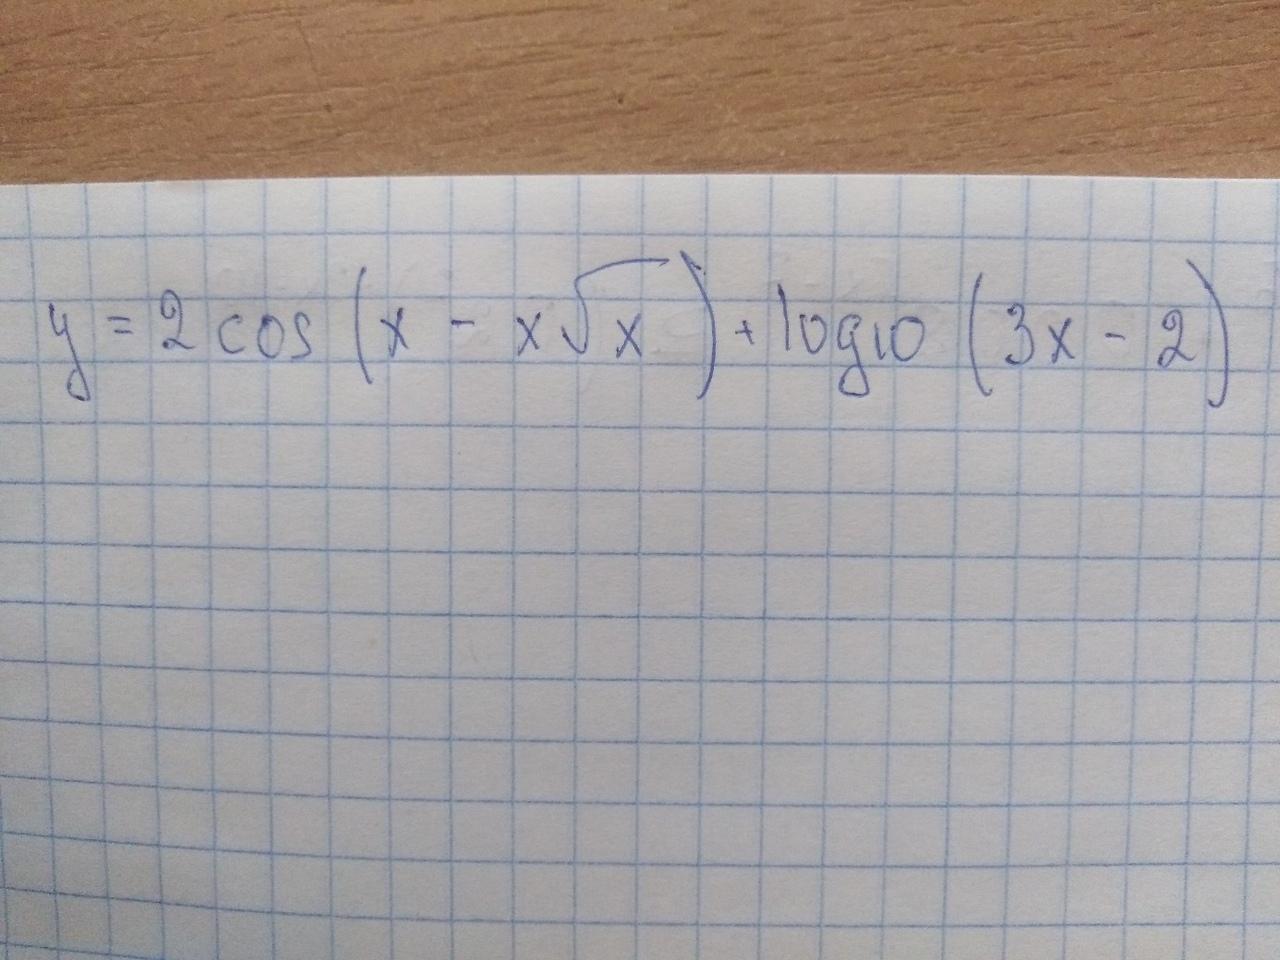 y = 2 cos (x - x√x) + log10 (3x - 2)